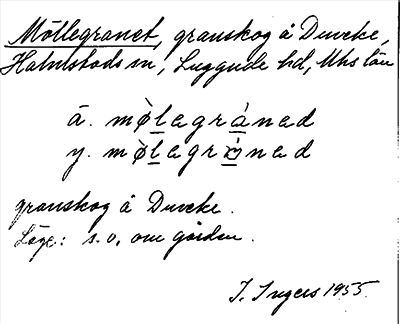 Möllegranet, granskog å Duveke,
Halmstads sn, Luggude hd, Mhs län
ä. mølegráned
y. mølegrǻned
granskog å Duveke.
Läge: s.o. om gården.
I. Ingers 1955.